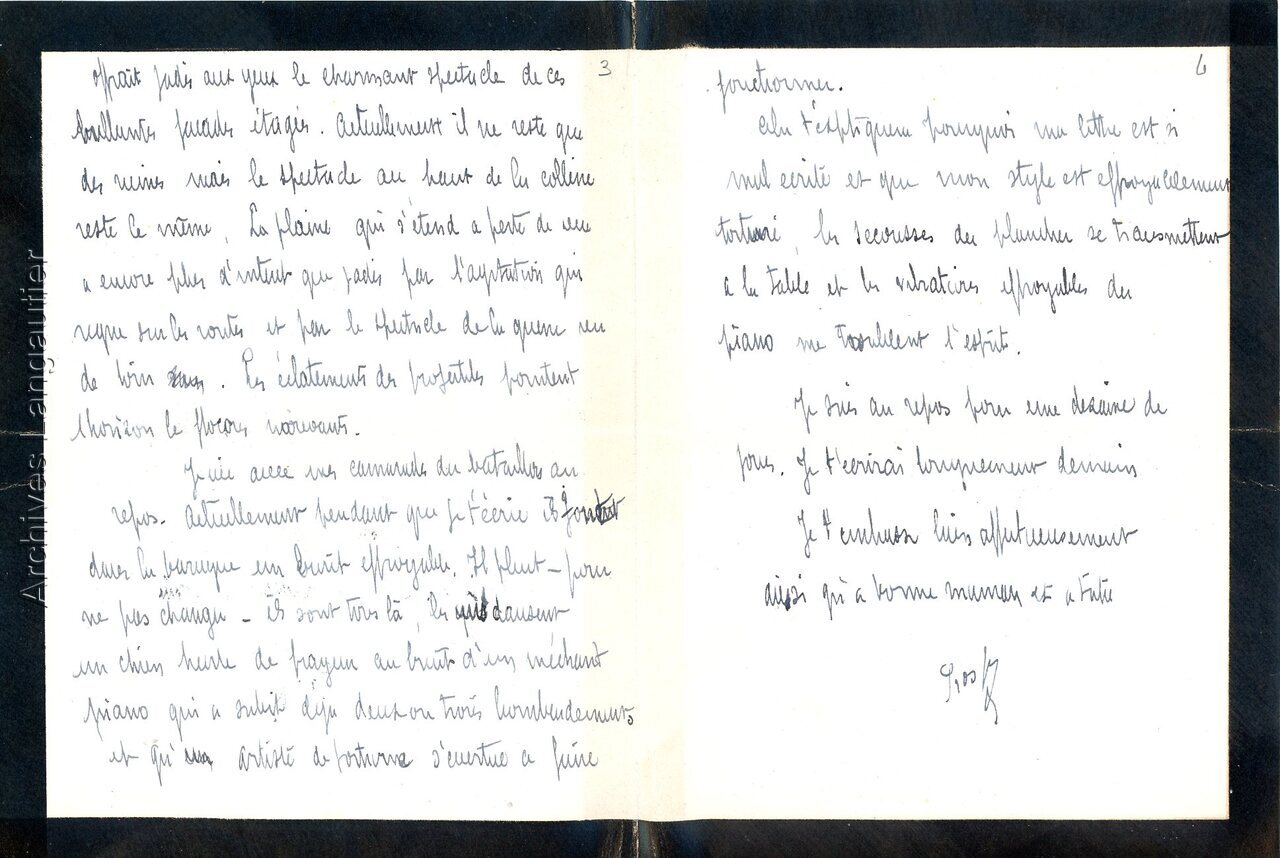 3
offrait jadis aux yeux le charmant spectacle de ces
brillantes facades étagés. Actuellement il ne reste que
des ruines mais le spectacle au haut de la colline
reste le même. La plaine qui s'étend a perte de vue
a encore plus d'interet que jadis par l'agitation qui
regne sur les routes et par le spectacle de la guerre vu
de loin. Les éclatements des projectiles pointent
l'horizon de flocons
Je vis avec mes camarades du bataillon au
repos. Actuellement pendant que je t'écris ils font
dans la baraque un bruit effroyable. Il pleut – pour
ne pas changer – ils sont tous là, ils dansent
un chien hurle de frayeur au bruit d'un méchant
piano qui a subit deja deux ou trois bombardements
et qu'un artiste de fortune s'evertue a faire
fonctionner.
Cela t'expliquera pourquoi ma lettre est si
mal ecrite et que mon style est effroyablement
torturé, les secousses du plancher se transmettent
a la table et les vibrations effroyables du
piano me troublent l'esprit.
Je suis au repos pour une dezaine de
jours. Je t'écrirai longuement demain
Je t'embrasse bien affectueusement
ainsi qu'a bonne maman et a tata
Archives Langautier